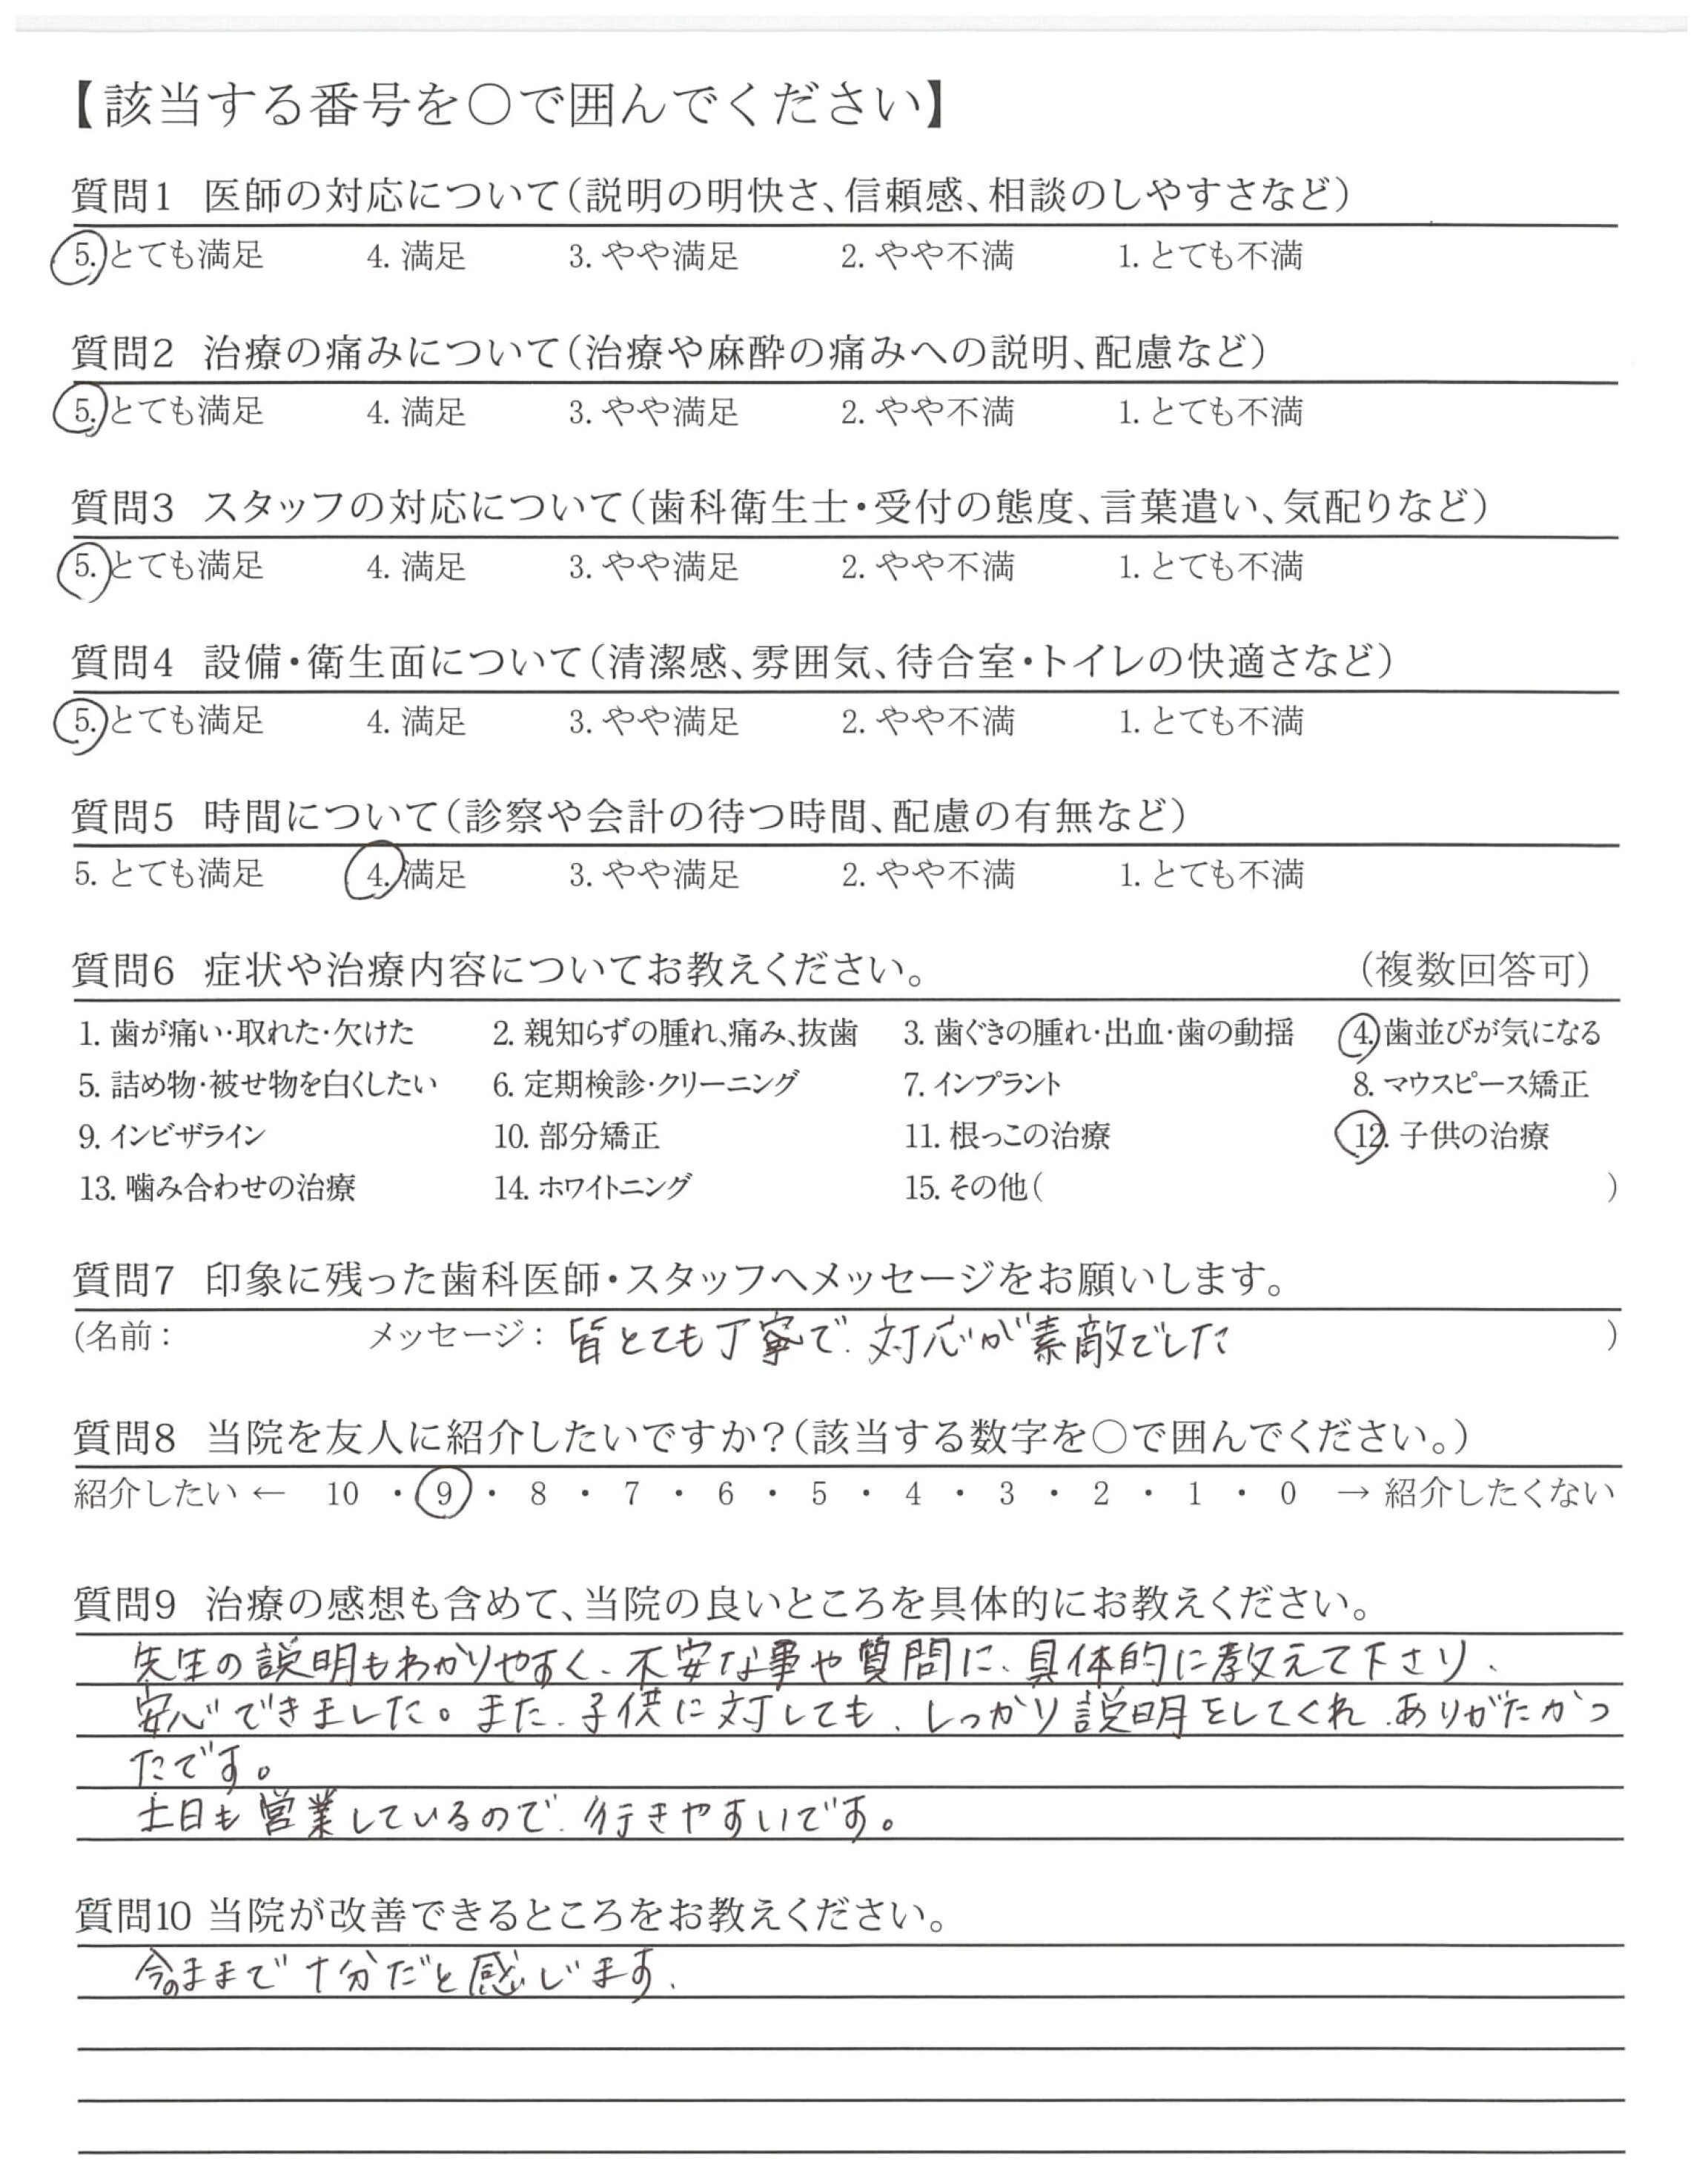 【該当する番号を○で囲んでください】
質問1 医師の対応について（説明の明快さ、信頼感、相談のしやすさなど）
5. とても満足 4. 満足 3. やや満足 2. やや不満 1. とても不満
質問2 治療の痛みについて（治療や麻酔の痛みへの説明、配慮など）
5. とても満足 4. 満足 3. やや満足 2. やや不満 1. とても不満
質問3 スタッフの対応について（歯科衛生士・受付の態度、言葉遣い、気配りなど）
5. とても満足 4. 満足 3. やや満足 2. やや不満 1. とても不満
質問4 設備・衛生面について（清潔感、雰囲気、待合室・トイレの快適さなど）
5. とても満足 4. 満足 3. やや満足 2. やや不満 1. とても不満
質問5 時間について（診察や会計の待つ時間、配慮の有無など）
5. とても満足 4. 満足 3. やや満足 2. やや不満 1. とても不満
質問6 症状や治療内容についてお教えください。 （複数回答可）
1. 歯が痛い・取れた・欠けた 2. 親知らずの腫れ、痛み、抜歯 3. 歯ぐきの腫れ・出血・歯の動揺 4. 歯並びが気になる
5. 詰め物・被せ物を白くしたい 6. 定期検診・クリーニング 7. インプラント 8. マウスピース矯正
9. インビザライン 10. 部分矯正 11. 根っこの治療 12. 子供の治療
13. 噛み合わせの治療 14. ホワイトニング 15. その他（ ）
質問7 印象に残った歯科医師・スタッフへメッセージをお願いします。
（名前： メッセージ： 皆とても丁寧で、対応が素敵でした ）
質問8 当院を友人に紹介したいですか？（該当する数字を○で囲んでください。）
紹介したい ← 10 ・ 9 ・ 8 ・ 7 ・ 6 ・ 5 ・ 4 ・ 3 ・ 2 ・ 1 ・ 0 → 紹介したくない
質問9 治療の感想も含めて、当院の良いところを具体的にお教えください。
先生の説明もわかりやすく、不安な事や質問に、具体的に教えて下さり、
安心できました。また、子供に対しても、しっかり説明をしてくれ、ありがたかっ
たです。
土日も営業しているので、行きやすいです。
質問10 当院が改善できるところをお教えください。
今のままで十分だと感じます。